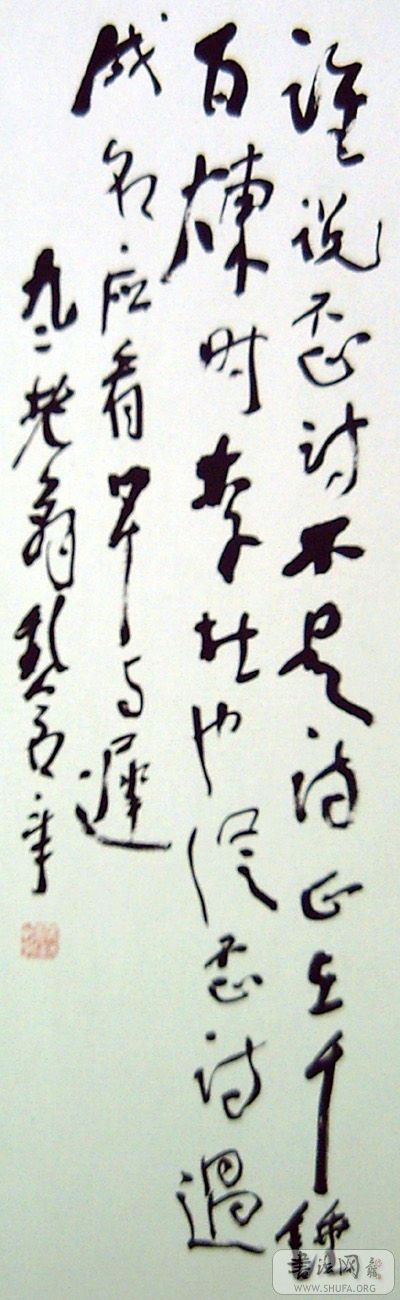 谁说歪诗不是诗正在千锤
百炼时李杜也从歪诗过
成名应看早与迟
九二
书法网
WWW.SHUFA.ORG